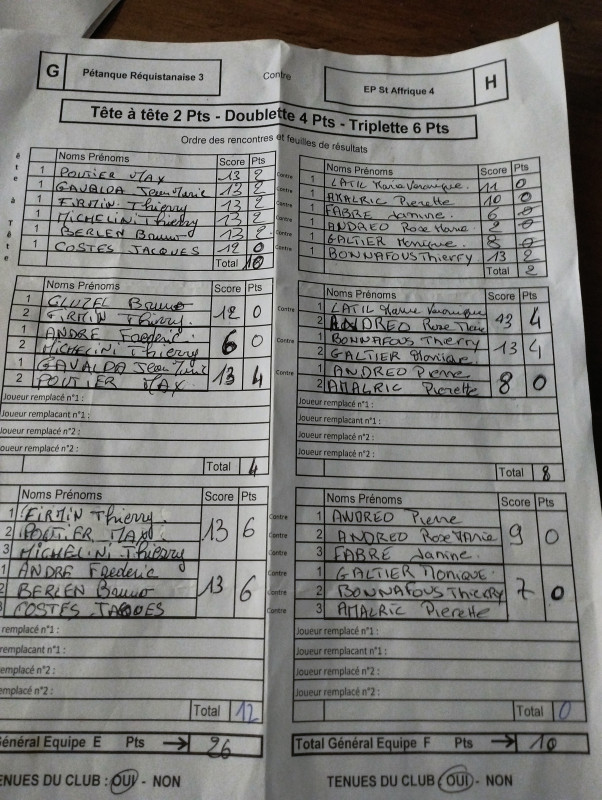 G Pétanque Réquistanaise 3 Contre EP St Affrique 4 H
Tête à tête 2 Pts - Doublette 4 Pts - Triplette 6 Pts
Ordre des rencontres et feuilles de résultats
Noms Prénoms Score Pts
1 POUTIER MAX 13 2
1 GAVALDA Jean Marie 13 2
1 FIRMIN Thierry 13 2
1 MICHELINI Thierry 13 2
1 BERLEN Bruno 13 2
1 COSTES JACQUES 12 0
Total 10
Contre
Noms Prénoms Score Pts
1 LATIL Marie Veronique. 11 0
1 AMALRIC Pierette 10 0
1 FABRE Janine. 6 0
1 ANDREO Rose Marie. 2 0
1 GALTIER Monique. 8 0
1 BONNAFOUS Thierry 13 2
Total 2
Noms Prénoms Score Pts
1 GLUZEL Bruno 12 0
2 FIRMIN Thierry.
1 ANDRE Frederic. 6 0
2 MICHELINI Thierry
1 GAVALDA Jean Marie 13 4
2 POUTIER MAX
Joueur remplacé n°1 :
Joueur remplacant n°1 :
Joueur remplacé n°2 :
Joueur remplacé n°2 :
Total 4
Contre
Noms Prénoms Score Pts
1 LATIL Marie Veronique 13 4
2 ANDREO Rose Marie
1 BONNAFOUS Thierry 13 4
2 GALTIER Monique.
1 ANDREO Pierre 8 0
2 AMALRIC Pierette
Joueur remplacé n°1 :
Joueur remplacant n°1 :
Joueur remplacé n°2 :
Joueur remplacé n°2 :
Total 8
Noms Prénoms Score Pts
1 FIRMIN Thierry. 13 6
2 POUTIER MAX.
3 MICHELINI Thierry
1 ANDRE Frederic 13 6
2 BERLEN Bruno
3 COSTES JACQUES
remplacé n°1 :
remplacant n°1 :
remplacé n°2 :
remplacé n°2 :
Total 12
Contre
Noms Prénoms Score Pts
1 ANDREO Pierre 9 0
2 ANDREO Rose Marie
3 FABRE Janine.
1 GALTIER Monique. 7 0
2 BONNAFOUS Thierry
3 AMALRIC Pierette
Joueur remplacé n°1 :
Joueur remplacant n°1 :
Joueur remplacé n°2 :
Joueur remplacé n°2 :
Total 0
Général Equipe E Pts → 26
Total Général Equipe F Pts → 10
TENUES DU CLUB : OUI - NON
TENUES DU CLUB : OUI - NON